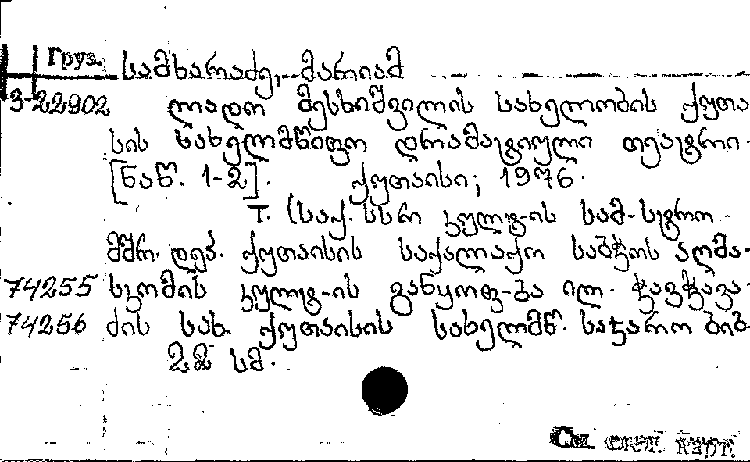 Груз. სამხარაძე, მარიამ
3-22902 ლადო მესხიშვილის სახელობის ქუთა
სის სახელმწიფო დრამატიული თეატრი.
[ნაწ. 1-2]. ქუთაისი, 1976.
т. (საქ. სსრ კულტ-ის სამ-სტრო.
მშრ. დეპ. ქუთაისის საქალაქო საბჭოს აღმა-
74255 სკომის კულტ-ის განყოფ-ბა ილ. ჭავჭავა-
74256 ძის სახ. ქუთაისის სახელმწ. საჯარო ბიბ.
22 სმ.
См. след. карт.